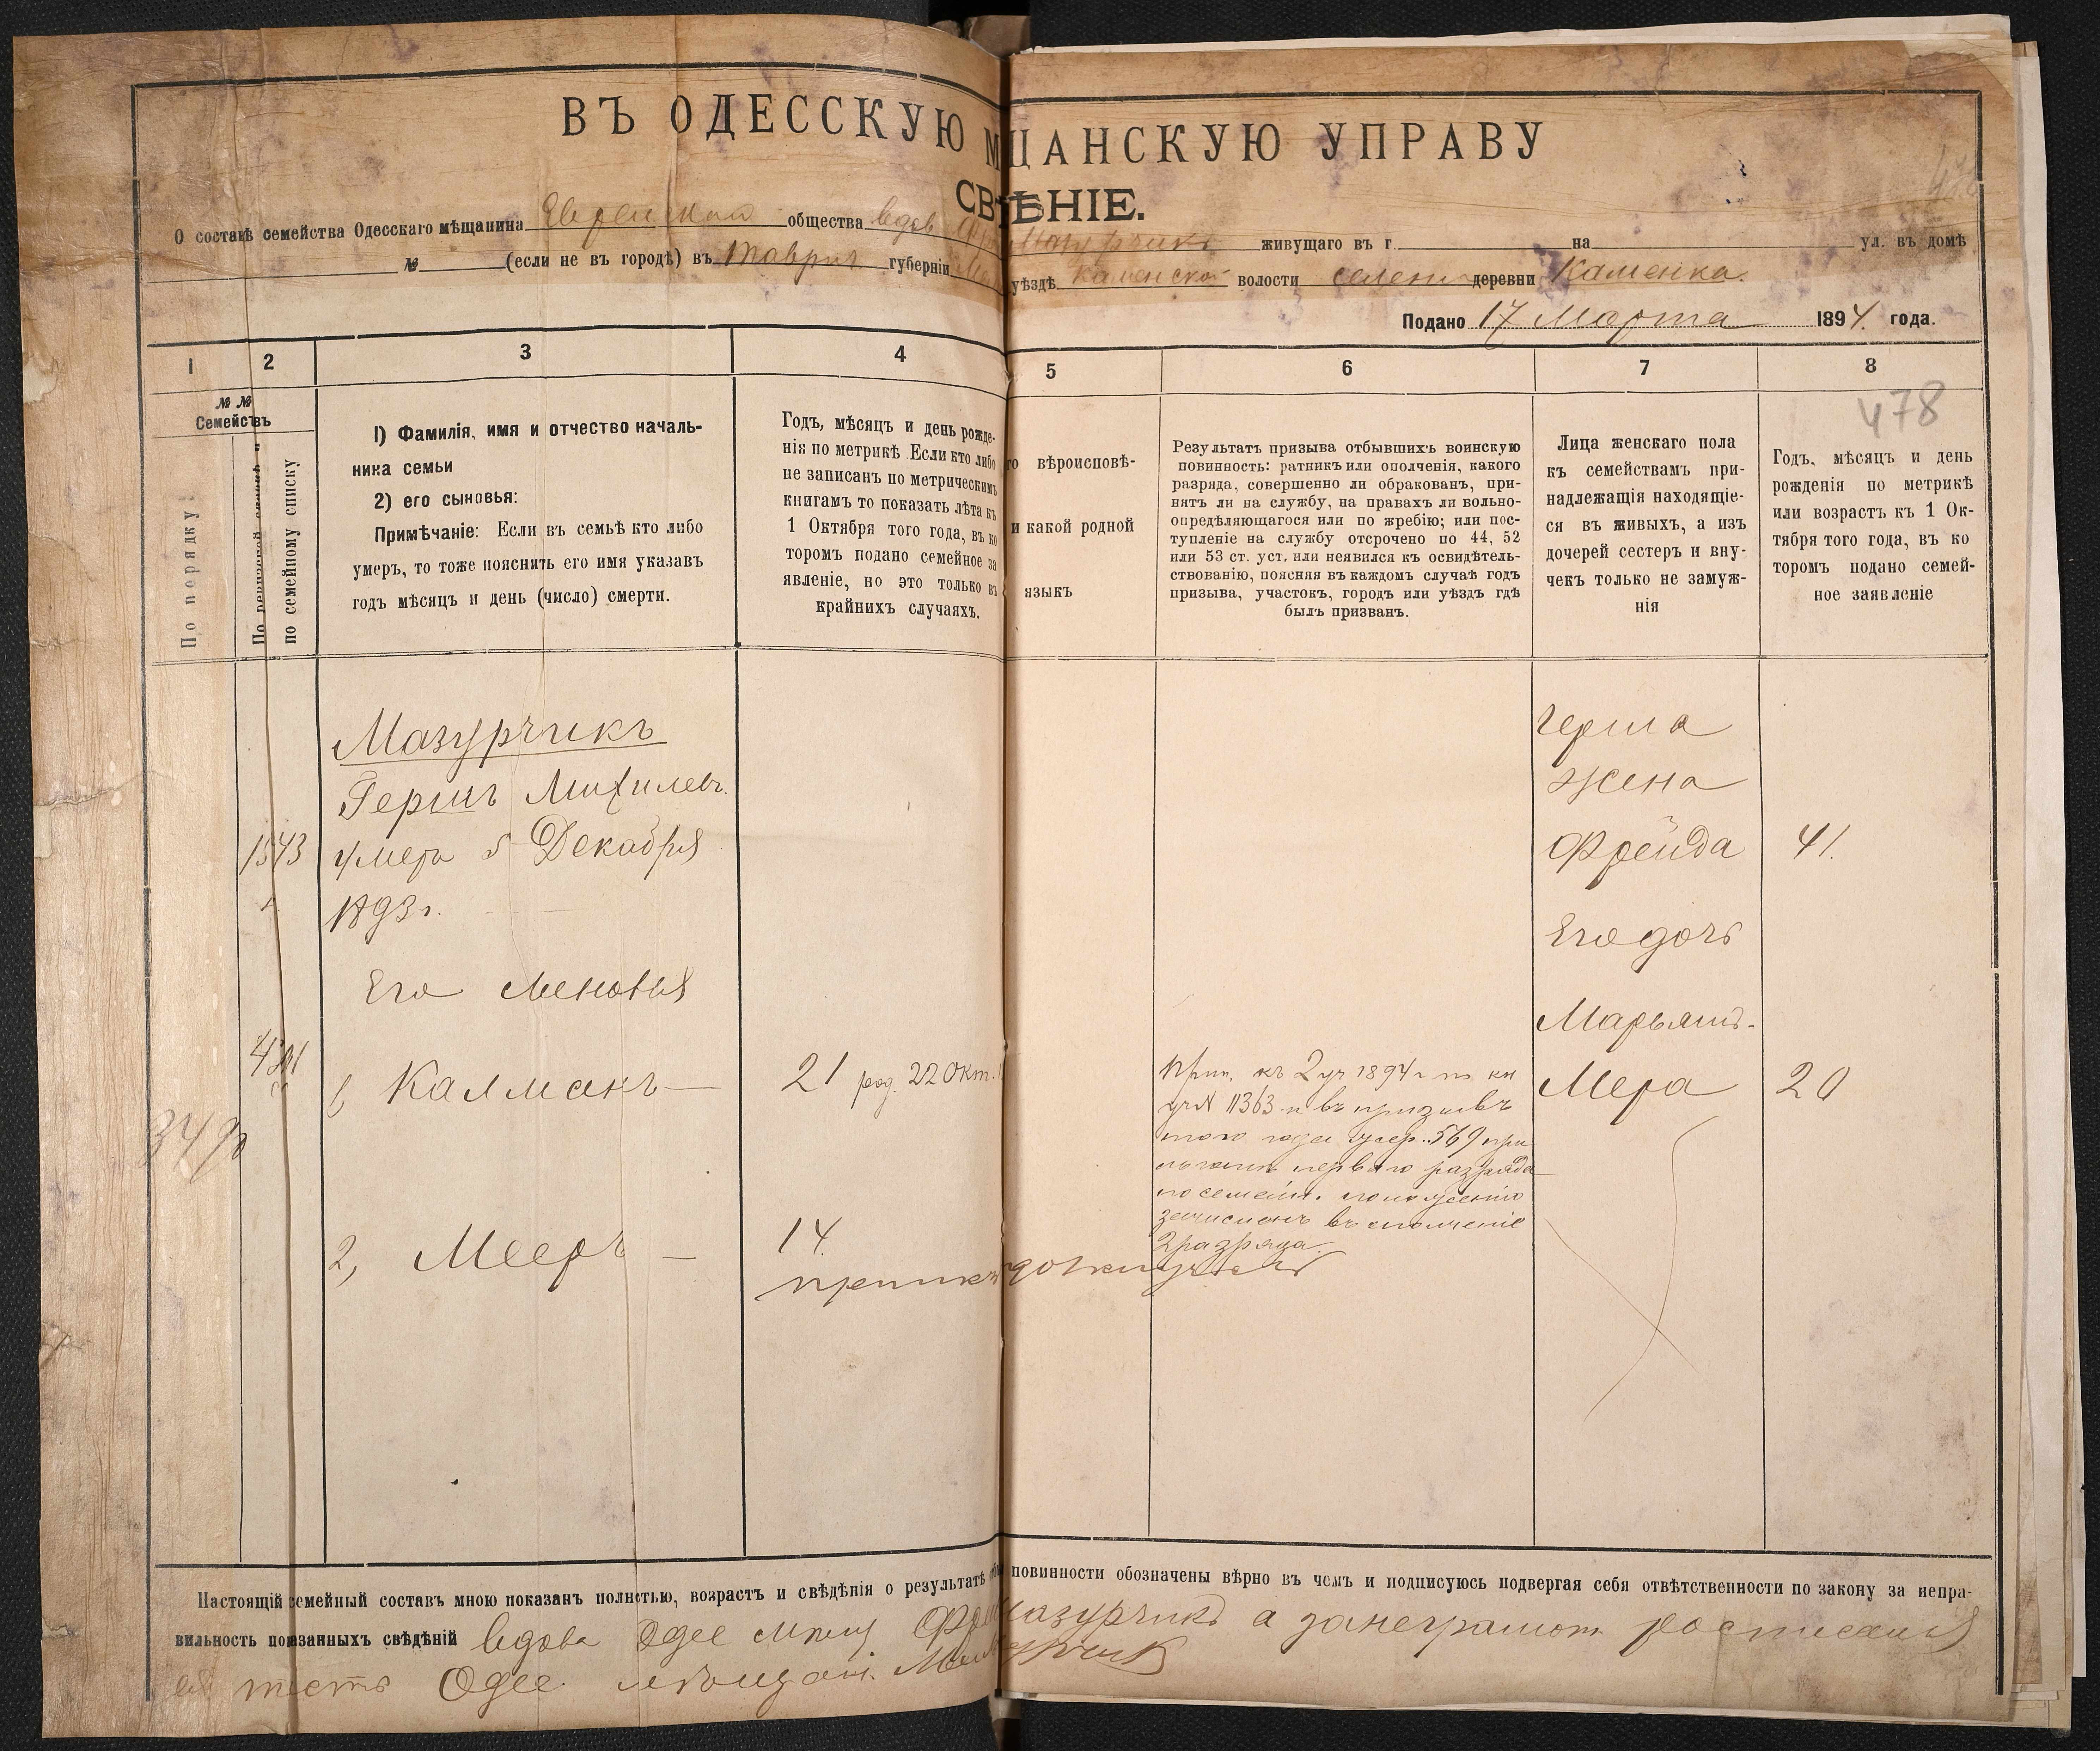 ВЪ ОДЕССКУЮ М ЩАНСКУЮ УПРАВУ
СВ ѢНІЕ.
О составѣ семейства Одесскаго мѣщанина Еврейскаго общества вдов Мазурчикъ живущаго въ г. на ул. въ домѣ
№ (если не въ городѣ) въ Таврич губерніи уѣздѣ Каменской волости селени деревни Каменка.
Подано 17 Марта 1894. года.
1 2 3 4 5 6 7 8
478
№ №
Семействъ
По порядку
По ревизской сказкѣ и
по семейному списку
1) Фамилія, имя и отчество началь-
ника семьи
2) его сыновья:
Примѣчаніе: Если въ семьѣ кто либо
умеръ, то тоже пояснить его имя указавъ
годъ мѣсяцъ и день (число) смерти.
Годъ, мѣсяцъ и день рожде-
нія по метрикѣ Если кто либо
не записанъ по метрическимъ
книгамъ то показать лѣта къ
1 Октября того года, въ ко
торомъ подано семейное за
явленіе, но это только въ
крайнихъ случаяхъ.
го вѣроисповѣ-
и какой родной
языкъ
Результатъ призыва отбывшихъ воинскую
повинность: ратникъ или ополченія, какого
разряда, совершенно ли обракованъ, при-
нятъ ли на службу, на правахъ ли вольно-
опредѣляющагося или по жребію; или пос-
тупленіе на службу отсрочено по 44, 52
или 53 ст. уст. или неявился къ освидѣтель-
ствованію, поясняя въ каждомъ случаѣ годъ
призыва, участокъ, городъ или уѣздъ гдѣ
былъ призванъ.
Лица женскаго пола
къ семействамъ при-
надлежащія находящіе-
ся въ живыхъ, а изъ
дочерей сестеръ и вну-
чекъ только не замуж-
нія
Годъ, мѣсяцъ и день
рожденія по метрикѣ
или возрастъ къ 1 Ок-
тября того года, въ ко
торомъ подано семей-
ное заявленіе
Мазурчикъ
Гершъ Михилевъ.
1543 умеръ 5 Декабря
1893 г.
Его сыновья
1, Калманъ — 21 род. 22 Окт.
3490
2, Мееръ — 14.
прип. къ 2 уч 1894 г по кн
уч № 11363 и въ призывъ
того года жер. 569 при
перваго разряда
по семейн. положенію
зачисленъ въ ополченіе
2 разряда.
Герша
жена
Фрейда 41.
Его дочь
Марьямъ-
Мера 20
Настоящій семейный составъ мною показанъ полностью, возрастъ и свѣдѣнія о результатѣ повинности обозначены вѣрно въ чемъ и подписуюсь подвергая себя отвѣтственности по закону за непра-
вильность показанныхъ свѣдѣній вдова Одес Мазурчикъ а за неграмотн росписался
ея тесть Одес. мѣщан.